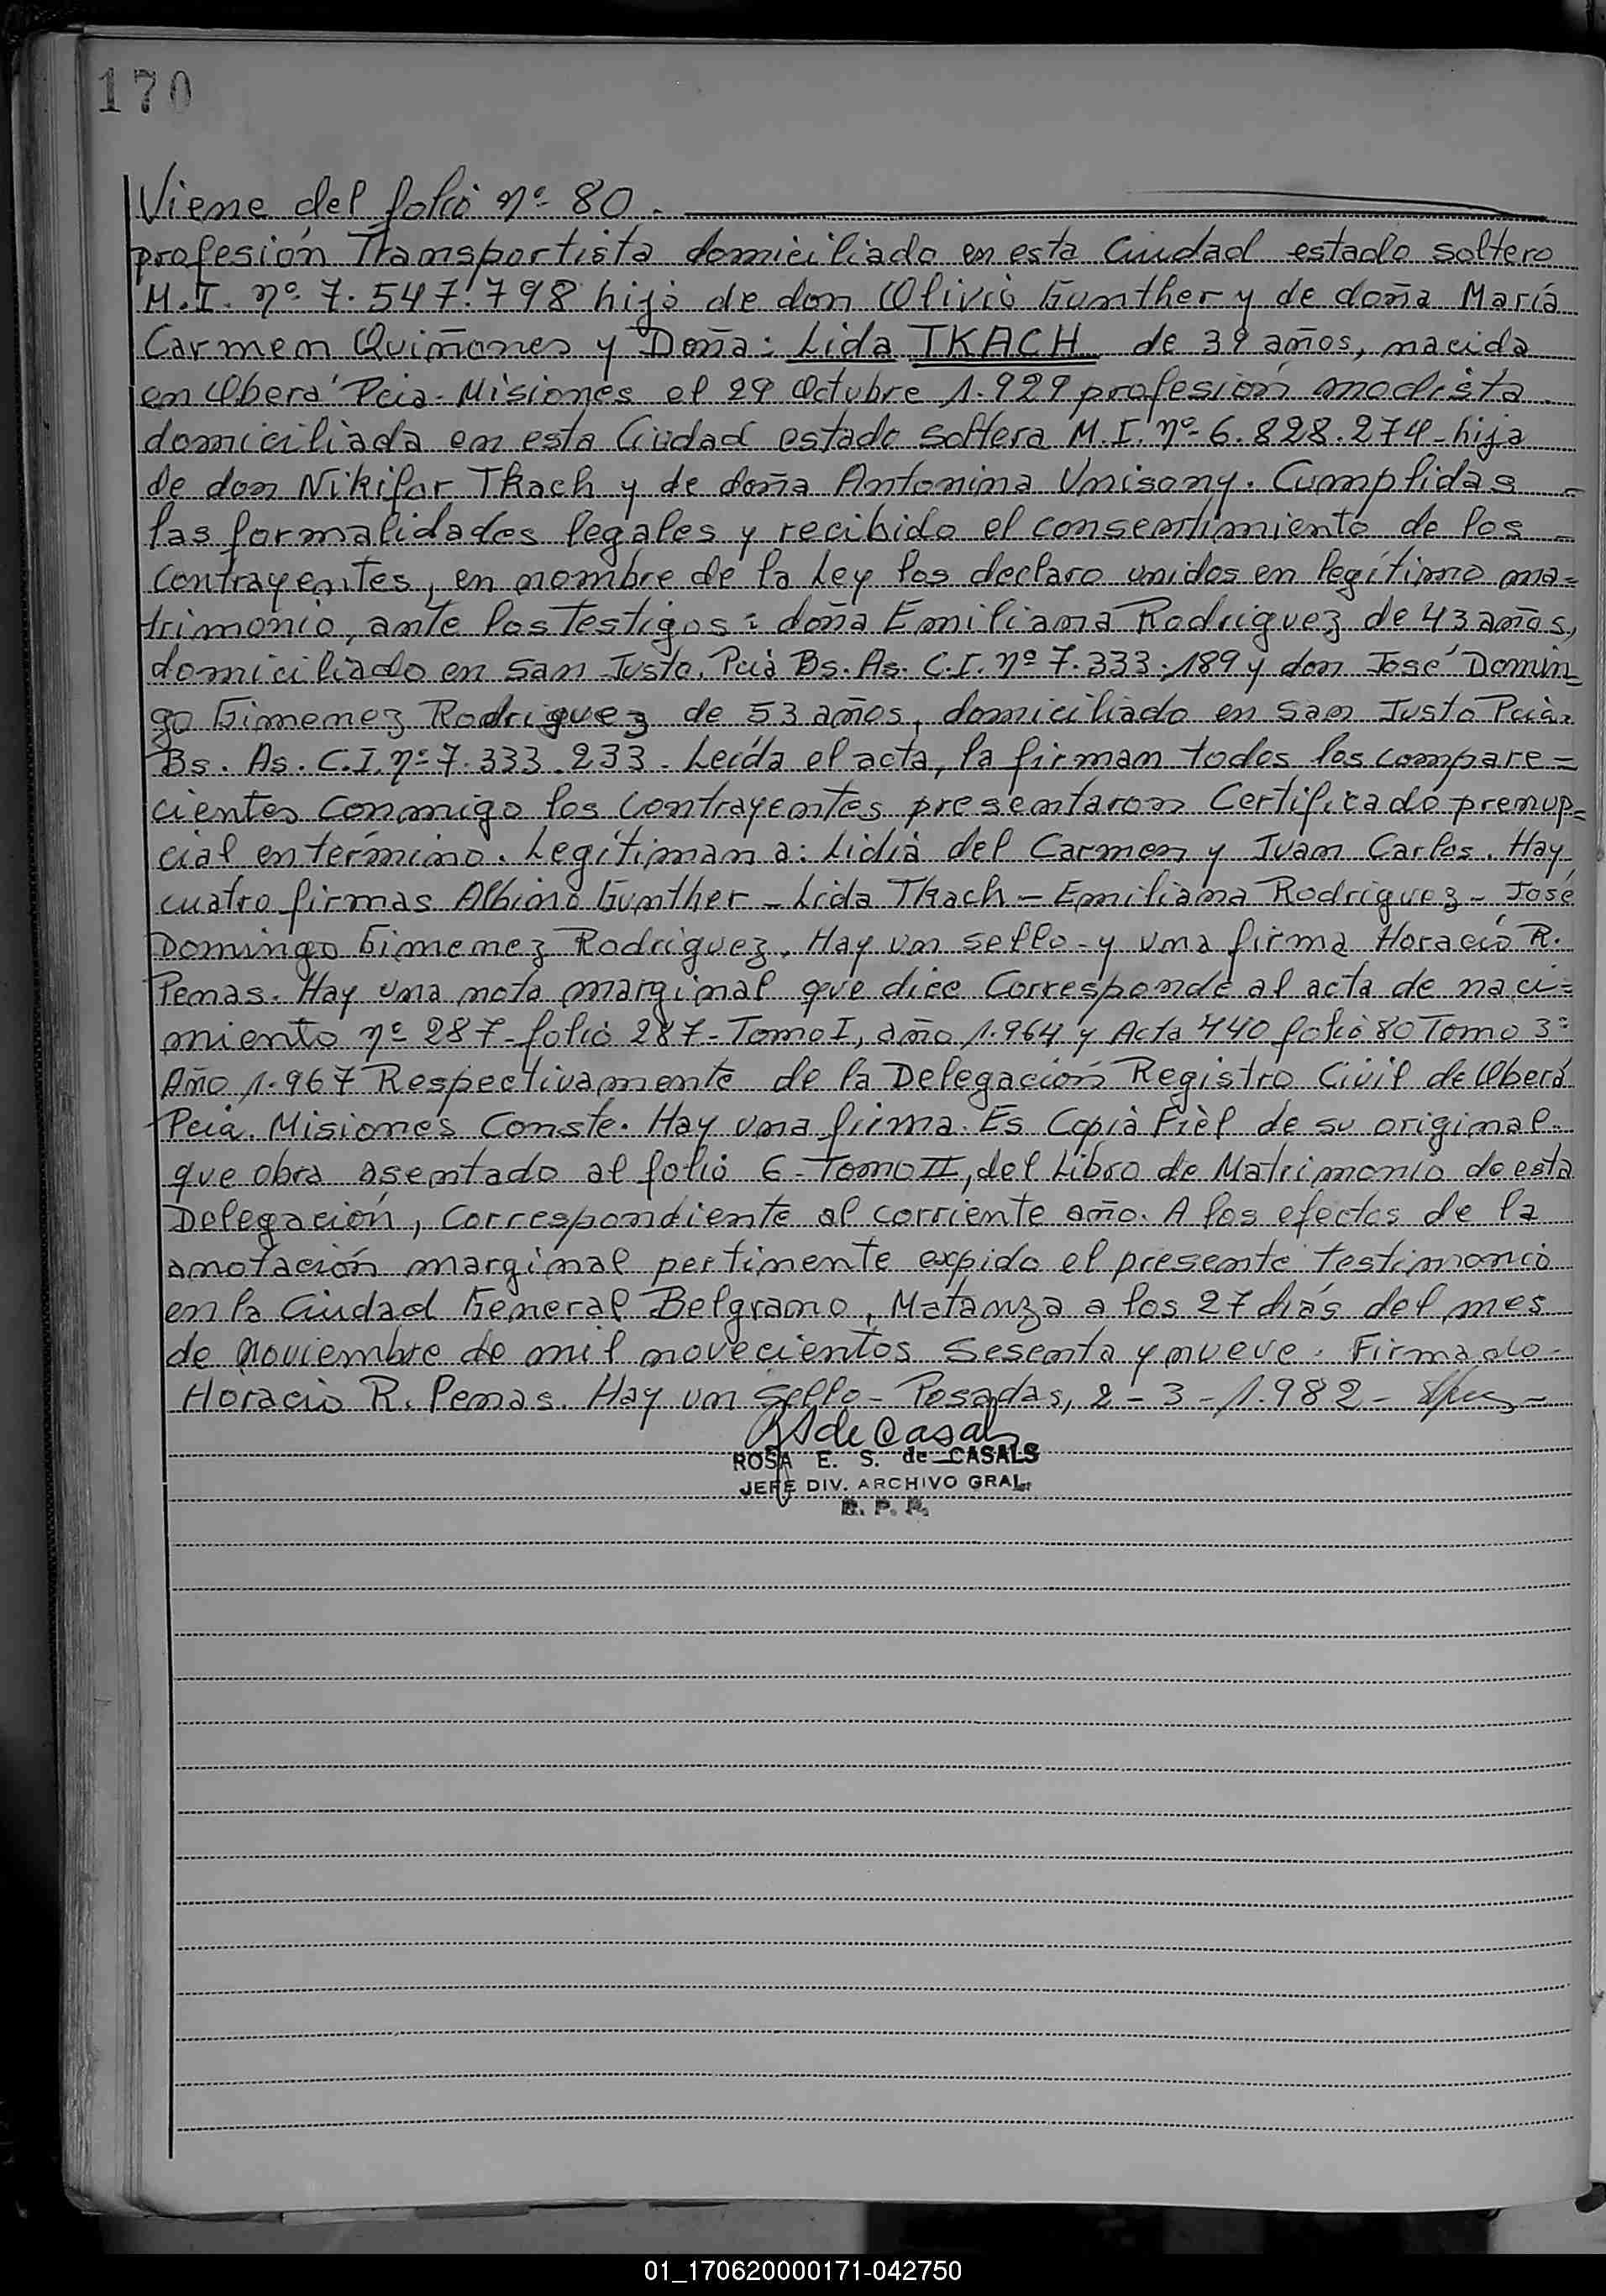 170
Viene del folio nº 80. 
profesión Transportista domiciliado en esta Ciudad estado soltero
M.I. nº 7.547.798 hijo de don Olivio Gunther y de doña María
Carmen Quiñones y Doña: Lida TKACH de 39 años, nacida
en Oberá Pcia. Misiones el 29 Octubre 1.929 profesión modista
domiciliada en esta Ciudad estado soltera M.I. nº 6.828.274 - hija
de don Nikifor Tkach y de doña Antonina Unisony. Cumplidas -
las formalidades legales y recibido el consentimiento de los -
contrayentes, en nombre de la Ley los declaro unidos en legítimo ma=
trimonio, ante los Testigos: doña Emiliana Rodriguez de 43 años,
domiciliado en San Justo. Pcia Bs. As. C.I. nº 7.333.189 y don José Domin_
go Gimenez Rodriguez de 53 años, domiciliado en San Justo Pcia.
Bs. As. C.I. nº 7.333.233. Leída el acta, la firman todos los compare=
cientes conmigo los contrayentes presentaron Certificado prenup=
cial en término. Legitiman a: Lidia del Carmen y Juan Carlos. Hay
cuatro firmas Albino Gunther - Lida Tkach - Emiliana Rodriguez - José
Domingo Gimenez Rodriguez. Hay un sello - y una firma Horacio R.
Penas. Hay una nota marginal que dice Corresponde al acta de naci=
miento nº 287 - folio 287 - Tomo I, año 1.964 y Acta 440 folio 80 Tomo 3º
Año 1.967 Respectivamente de la Delegación Registro Civil de Oberá
Pcia. Misiones Conste. Hay una firma. Es Copia Fiel de su original.
que obra asentado al folio 6 - Tomo II, del Libro de Matrimonio de esta
Delegación, Correspondiente al corriente año. A los efectos de la
anotación marginal pertinente expido el presente testimonio
en la Ciudad General Belgrano, Matanza a los 27 días del mes
de Noviembre de mil novecientos Sesenta y nueve. Firmado -
Horacio R. Penas. Hay un Sello - Posadas, 2 - 3 - 1.982 -
de Casals
ROSA E. S. de CASALS
JEFE DIV. ARCHIVO GRAL.
01_170620000171-042750